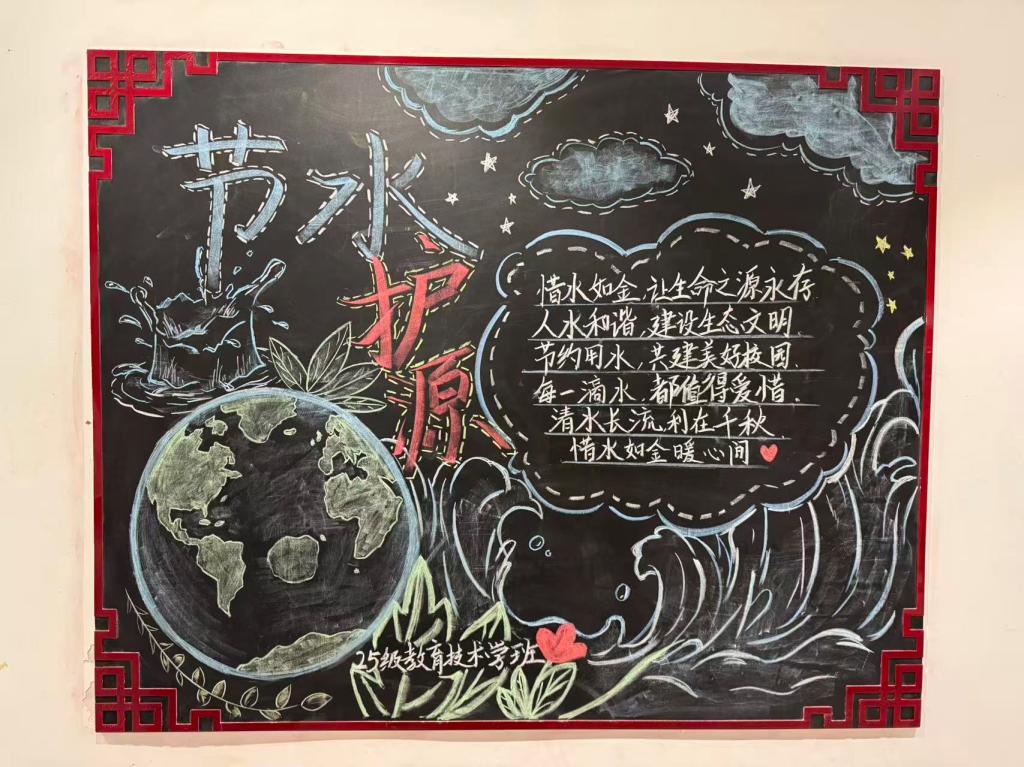 节水
护源
惜水如金,让生命之源永存
人水和谐,建设生态文明.
节约用水,共建美好校园.
每一滴水,都值得爱惜.
清水长流,利在千秋
惜水如金暖心间
25级教育技术学班